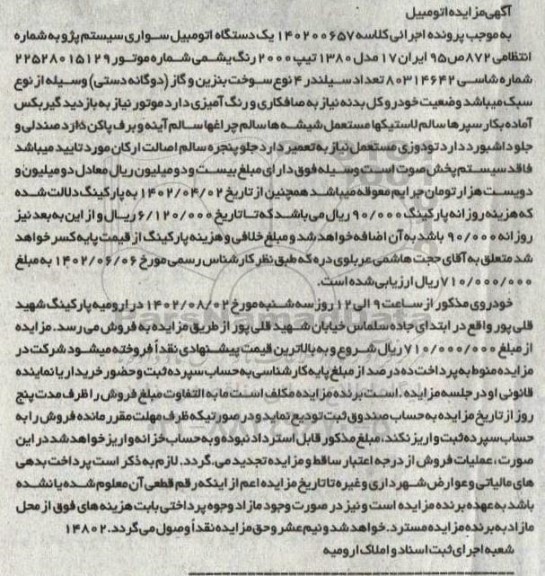 آگهی مزایده اتومبیل
به موجب پرونده اجرائی کلاسه ۱۴۰۲۰۰۶۵۷ یک دستگاه اتومبیل سواری سیستم پژو به شماره
انتظامی ۸۷۲ص۹۵ ایران ۱۷ مدل ۱۳۸۰ تیپ ۲۰۰۰ رنگ یشمی شماره موتور ۲۲۵۲۸۰۱۵۱۲۹
شماره شاسی ۸۰۳۱۴۶۴۲ تعداد سیلندر ۴ نوع سوخت بنزین و گاز (دوگانه دستی) وسیله از نوع
سبک میباشد وضعیت خودرو کل بدنه نیاز به صافکاری و رنگ آمیزی دارد موتور نیاز به بازدید گیربکس
آماده بکار سپرها سالم لاستیکها مستعمل شیشه ها سالم چراغها سالم آینه و برف پاکن دارد صندلی و
جلو داشبورد دارد تودوزی مستعمل نیاز به تعمیر دارد جلو پنجره سالم اصالت ارکان مورد تایید میباشد
فاقد سیستم پخش صوت است وسیله فوق دارای مبلغ بیست و دو میلیون ریال معادل دو میلیون و
دویست هزار تومان جرایم معوقه میباشد همچنین از تاریخ ۱۴۰۲/۰۴/۰۲ به پارکینگ دلالت شده
که هزینه روزانه پارکینگ ۹۰/۰۰۰ ریال می باشد که تا تاریخ ۶/۱۲۰/۰۰۰ ریال و از این به بعد نیز
روزانه ۹۰/۰۰۰ باشد به آن اضافه خواهد شد و مبلغ خلافی و هزینه پارکینگ از قیمت پایه کسر خواهد
شد متعلق به آقای حجت هاشمی عربلوی دره که طبق نظر کارشناس رسمی مورخ ۱۴۰۲/۰۶/۰۶ به مبلغ
۷۱۰/۰۰۰/۰۰۰ ریال ارزیابی شده است.
خودروی مذکور از ساعت ۹ الی ۱۲ روز سه شنبه مورخ ۱۴۰۲/۰۸/۰۲ در ارومیه پارکینگ شهید
قلی پور واقع در ابتدای جاده سلماس خیابان شهید قلی پور از طریق مزایده به فروش می رسد. مزایده
از مبلغ ۷۱۰/۰۰۰/۰۰۰ ریال شروع و به بالاترین قیمت پیشنهادی نقداً فروخته میشود شرکت در
مزایده منوط به پرداخت ده درصد از مبلغ پایه کارشناسی به حساب سپرده ثبت و حضور خریدار یا نماینده
قانونی او در جلسه مزایده . است برنده مزایده مکلف است ما به التفاوت مبلغ فروش را ظرف مدت پنج
روز از تاریخ مزایده به حساب صندوق ثبت تودیع نماید و در صورتیکه ظرف مهلت مقرر مانده فروش را به
حساب سپرده ثبت واریز نکند، مبلغ مذکور قابل استرداد نبوده و به حساب خزانه واریز خواهد شد در این
صورت ، عملیات فروش از درجه اعتبار ساقط و مزایده تجدید می.گردد. لازم به ذکر است پرداخت بدهی
های مالیاتی و عوارض شهرداری و غیره تا تاریخ مزایده اعم از اینکه رقم قطعی آن معلوم شده یا نشده
باشد به عهده برنده مزایده است و نیز در صورت وجود مازاد وجوه پرداختی بابت هزینه های فوق از محل
مازاد به برنده مزایده مسترد. خواهد شد و نیم عشر و حق مزایده نقداً وصول می گردد. ۱۴۸۰۲
شعبه اجرای ثبت اسناد و املاک ارومیه